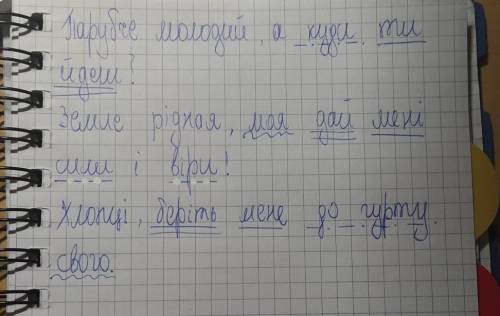 Парубче молодий, а куди ти
йдеш?
Земле рідная, моя дай мені
сили і віри!
Хлопці, беріть мене до гурту
свого.